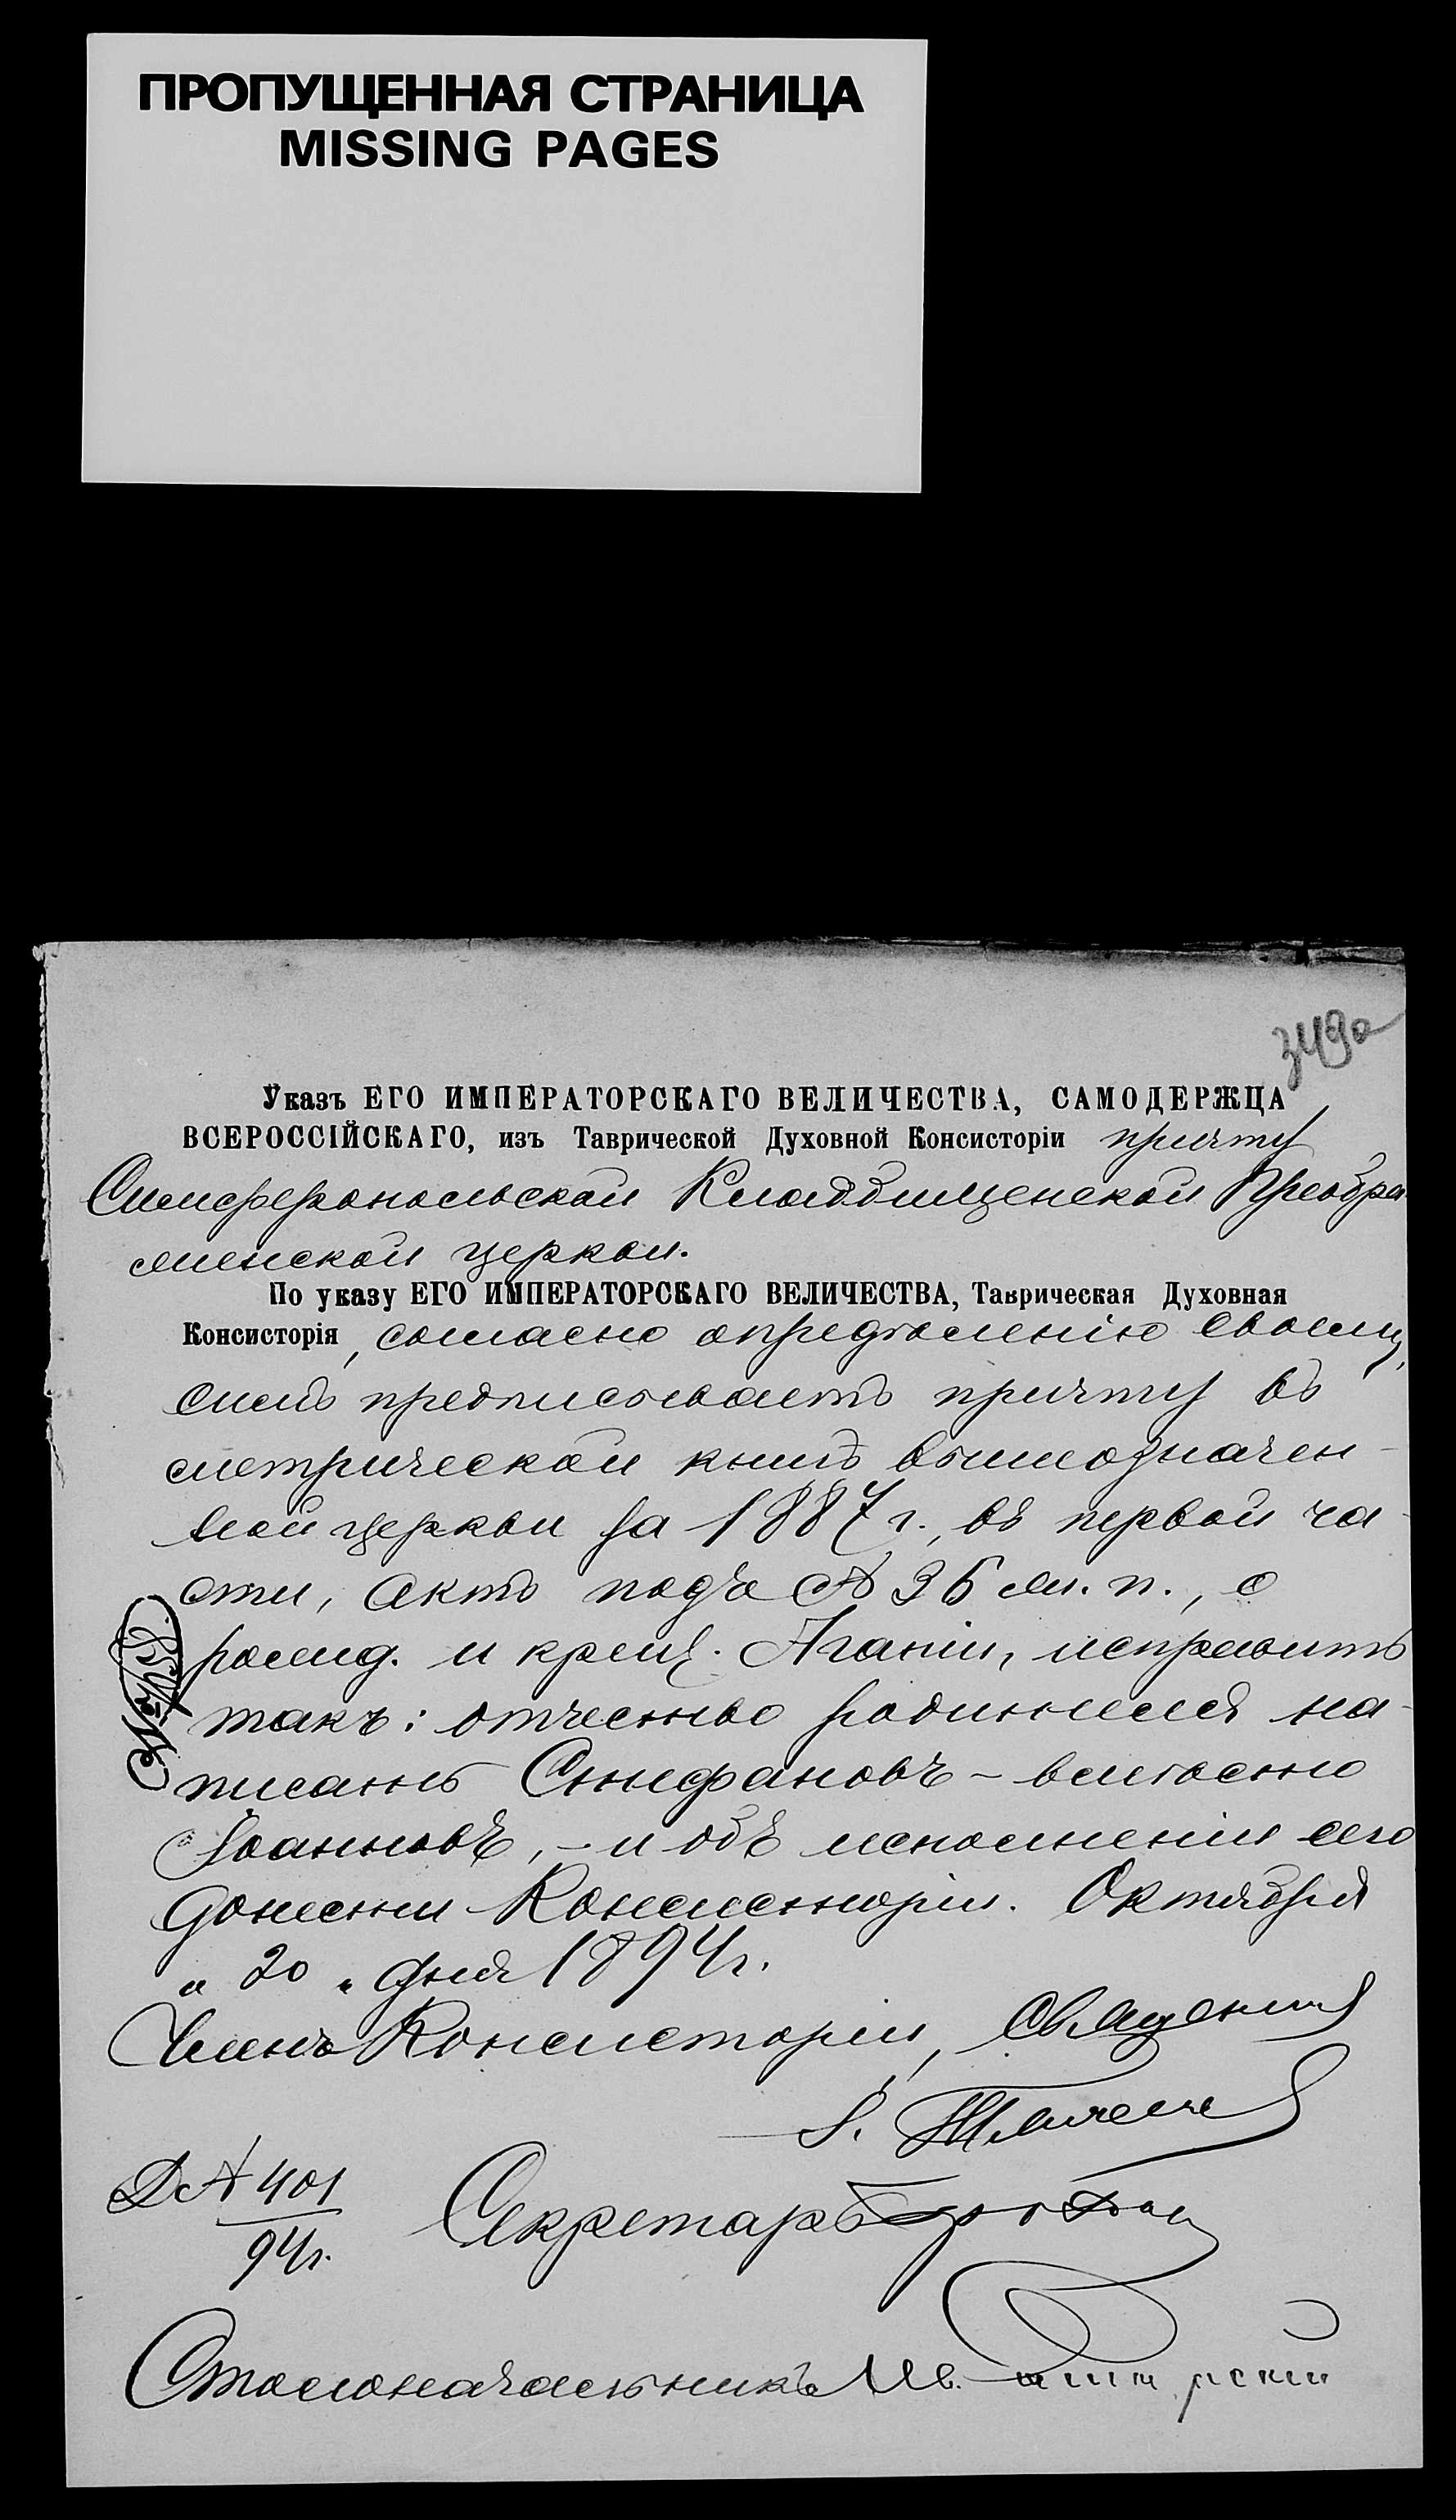 ПРОПУЩЕННАЯ СТРАНИЦА
MISSING PAGES
349а
Указъ ЕГО ИМПЕРАТОРСКАГО ВЕЛИЧЕСТВА, САМОДЕРЖЦА
ВСЕРОССІЙСКАГО, изъ Таврической Духовной Консисторіи причту
Симферопольской Кладбищенской Преобра
женской церкви.
По указу ЕГО ИМПЕРАТОРСКАГО ВЕЛИЧЕСТВА, Таврическая Духовная
Консисторія, согласно опредѣленію своему,
симъ предписываетъ причту въ
метрической книгѣ вышеозначен-
ной церкви за 1887 г., въ первой ча-
сти, актъ подъ № 36 ж. п., о
рожд. и крещ. Агапіи, исправить
такъ: отчество родителя на-
писать Стефановъ – вмѣсто
Іоанновъ, – и объ исполненіи сего
донести Консисторіи. Октября
„ 20 „ дня 1894 г.
Членъ Консисторіи, Священникъ
Д № 401
94 г.
Секретарь
Столоначальникъ Ив.